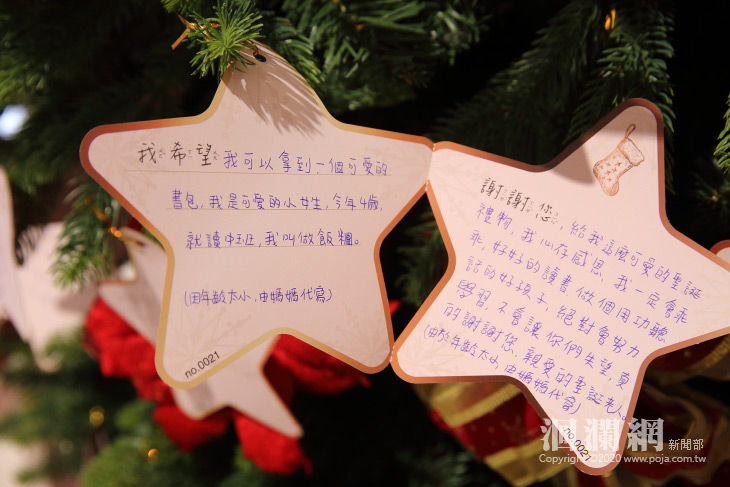 我希望 我可以拿到一個可愛的
書包，我是可愛的小女生，今年4歲，
就讀中班，我叫做飯糰。
(因年齡太小，由媽媽代寫)
no.0021
謝謝您，給我這麼可愛的聖誕
禮物，我叫存感恩，我一定會乖
乖，好好的讀書做個用功聽
話的好孩子，絕對會努力
學習，不會讓你們失望，真
的謝謝您，親愛的聖誕老人。
(由於年齡太小，由媽媽代寫)
no.0021
洄瀾網 新聞部
Copyright © 2020 www.poja.com.tw